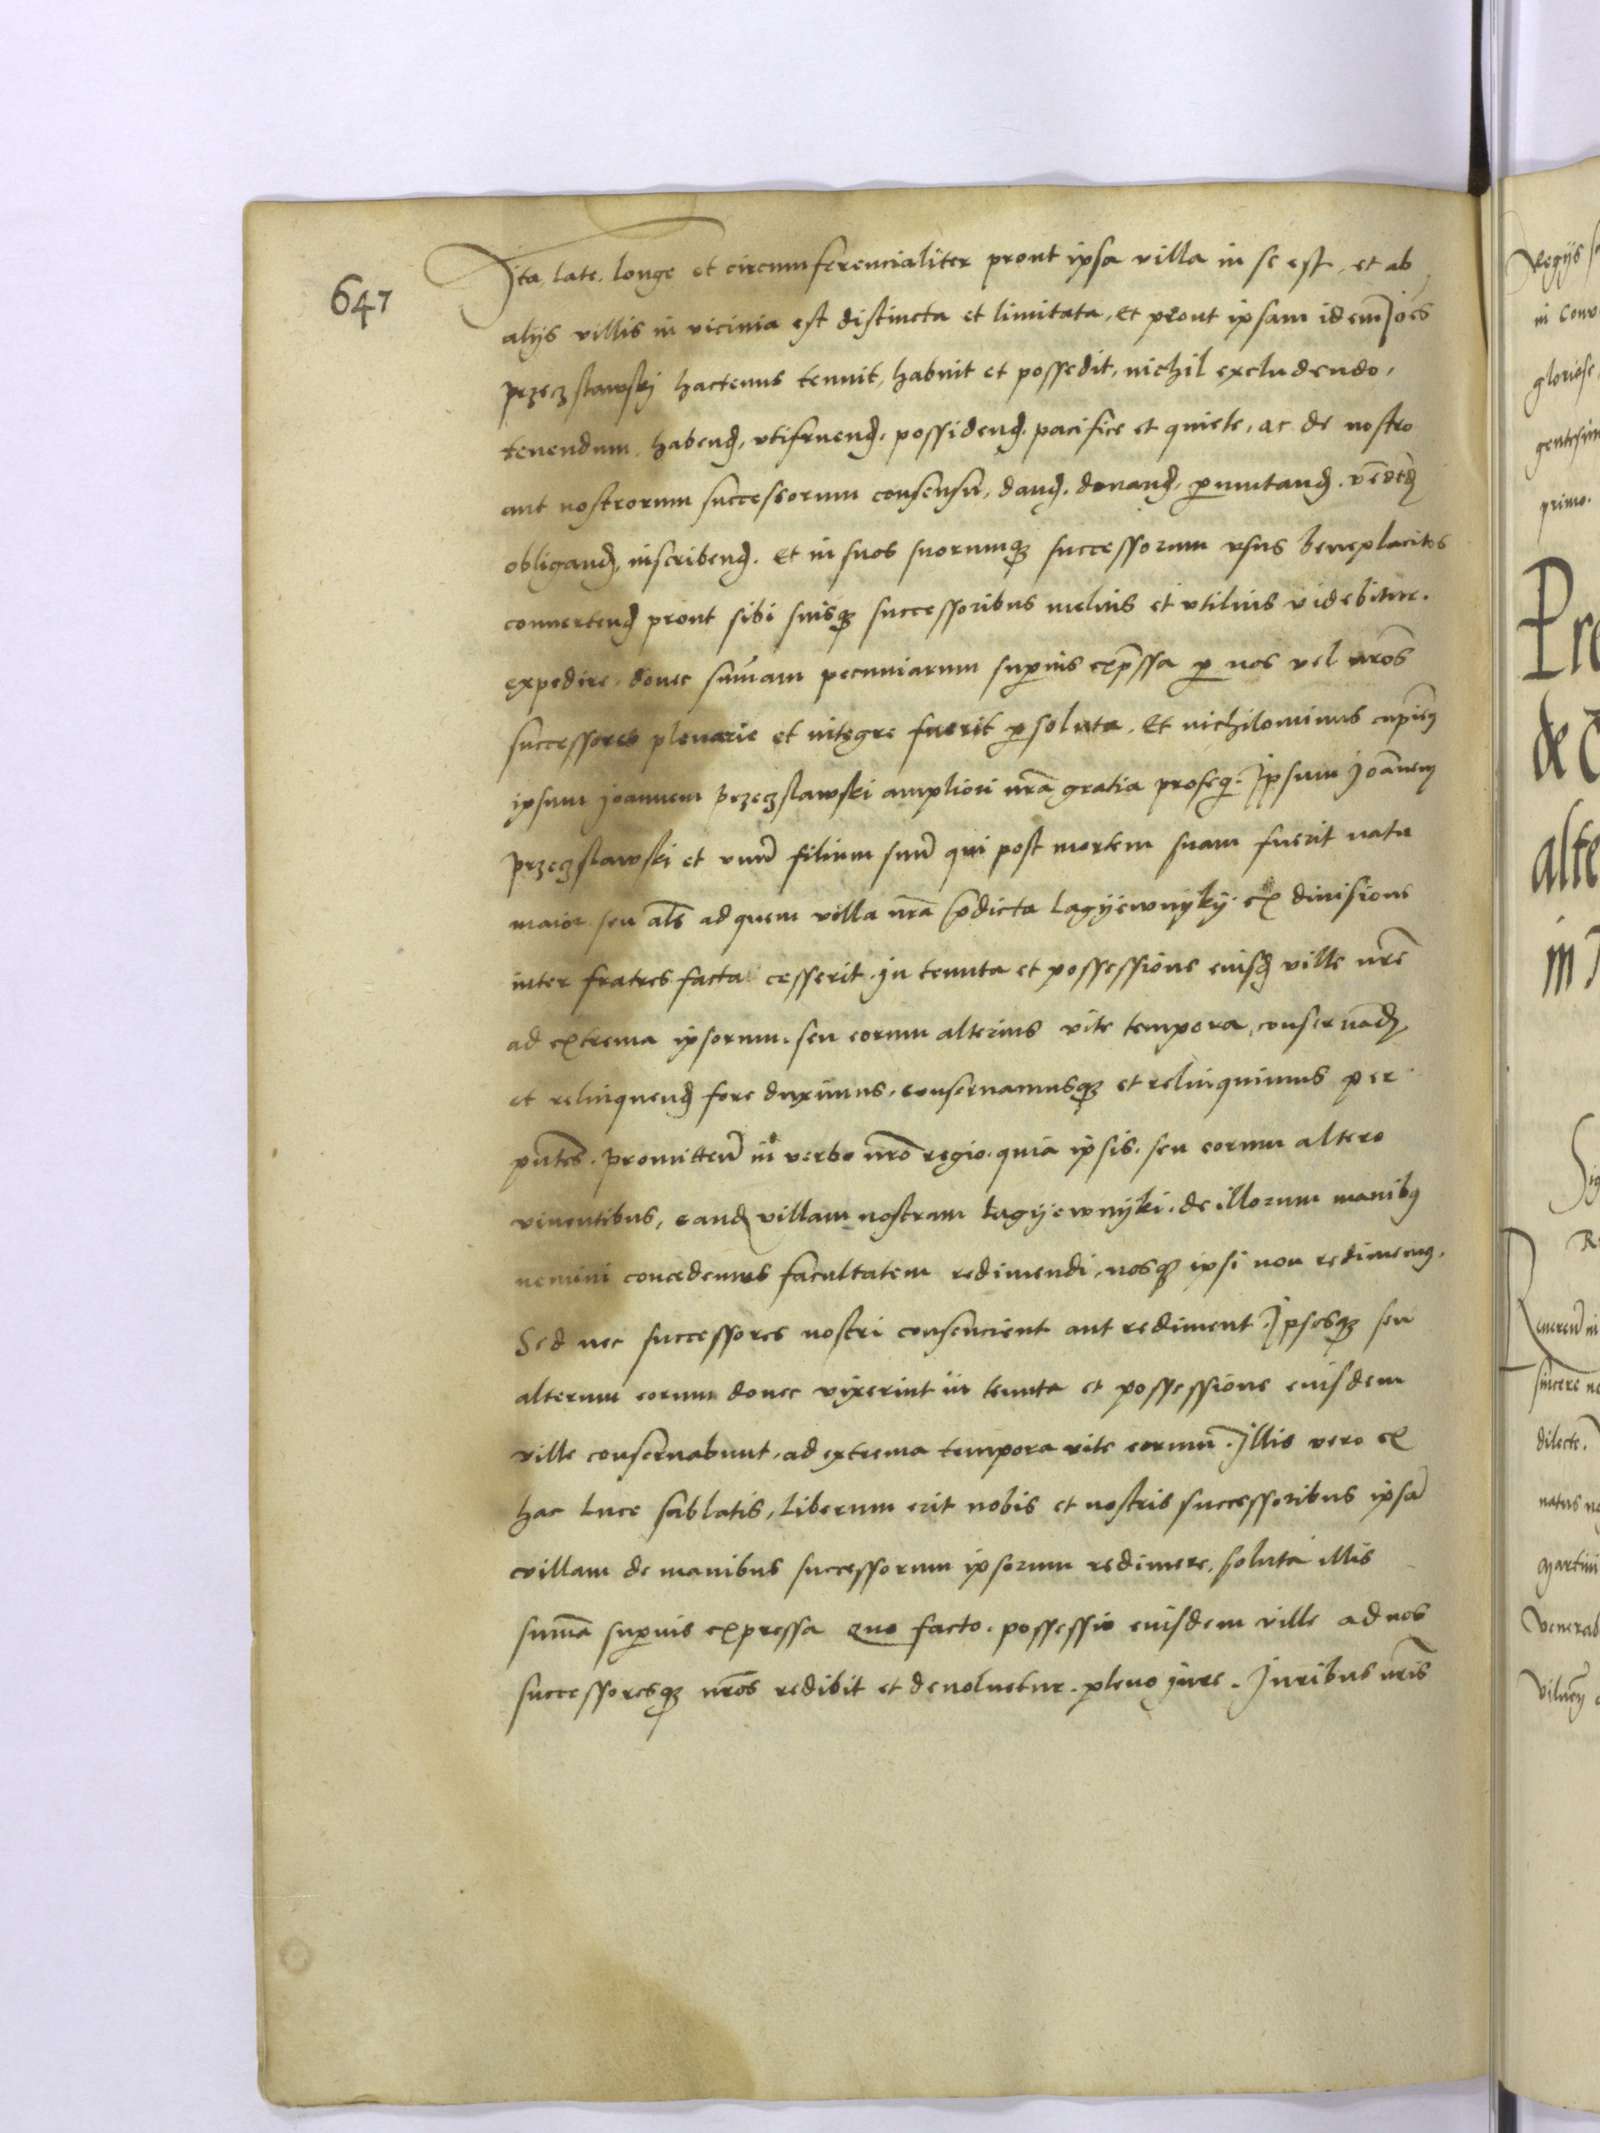 647
Ita late. longe et circumferencialiter prout ipsa villa in se est, et ab
alijs villis in vicinia est distincta et limitata, et prout ipsam idem Joēs
Przeczslawski hactenus tenuit, habuit et possedit, nichil excludendo,
tenendum, habend, vtifruend, possidend, pacifice et quiete, ac de nostro
aut nostrorum successorum consensu, dand, donand, ꝑmutand, vēded
obligand, inscribend. Et in suos suorumqꝫ successorum vsus beneplacitos
conuertend prout sibi suisqꝫ successoribus melius et vtilius videbitur.
expedire, donec sum̄am pecuniarum suꝑius exp̄ssa ꝑ nos vel nr̄os
successores plenarie et integre fuerit ꝑsoluta. Et nichilominus cupiēs
ipsum Joannem Przeczslawski ampliori nr̄a gratia proseq. Ipsum Joānem
Przeczslawski et vnū filium suū qui post mortem suam fuerit natu
maior seu al̄s ad quem villa nr̄a p̄dicta Lagyewnyky ex diuisione
inter fratres facta cesserit in tenuta et possessione eiusd ville nr̄e
ad extrema ipsorum, seu eorum alterius vite tempora, conseruād
et relinquend fore duximus, conseruamusqꝫ et relinquimus per
pn̄tes. Promitteñ in verbo nr̄o regio. quia ipsis, seu eorum altero
viuentibus, eand villam nostram Lagyewnyki, de illorum manibꝰ
nemini concedemus facultatem redimendi, nosqꝫ ipsi non redimemꝰ.
Sed nec successores nostri consencient aut rediment. Ipsosqꝫ seu
alterum eorum donec vixerint in tenuta et possessione eiusdem
ville conseruabunt, ad extrema tempora vite eorum̄. Illis vero ex
hac luce sublatis, liberum erit nobis et nostris successoribus ipsā
villam de manibus successorum ipsorum redimere, soluta illis
sum̄a suꝑius expressa Quo facto. possessio eiusdem ville ad nos
successoresqꝫ nr̄os redibit et deuoluetur. pleno jure. Juribus nr̄is
Regijs
in Conv
gloriose
gentesim
primo.
Pre
de
alte
in
Sig
Reuereñ in
sincere
dilecte.
natus
Martini
Venerab